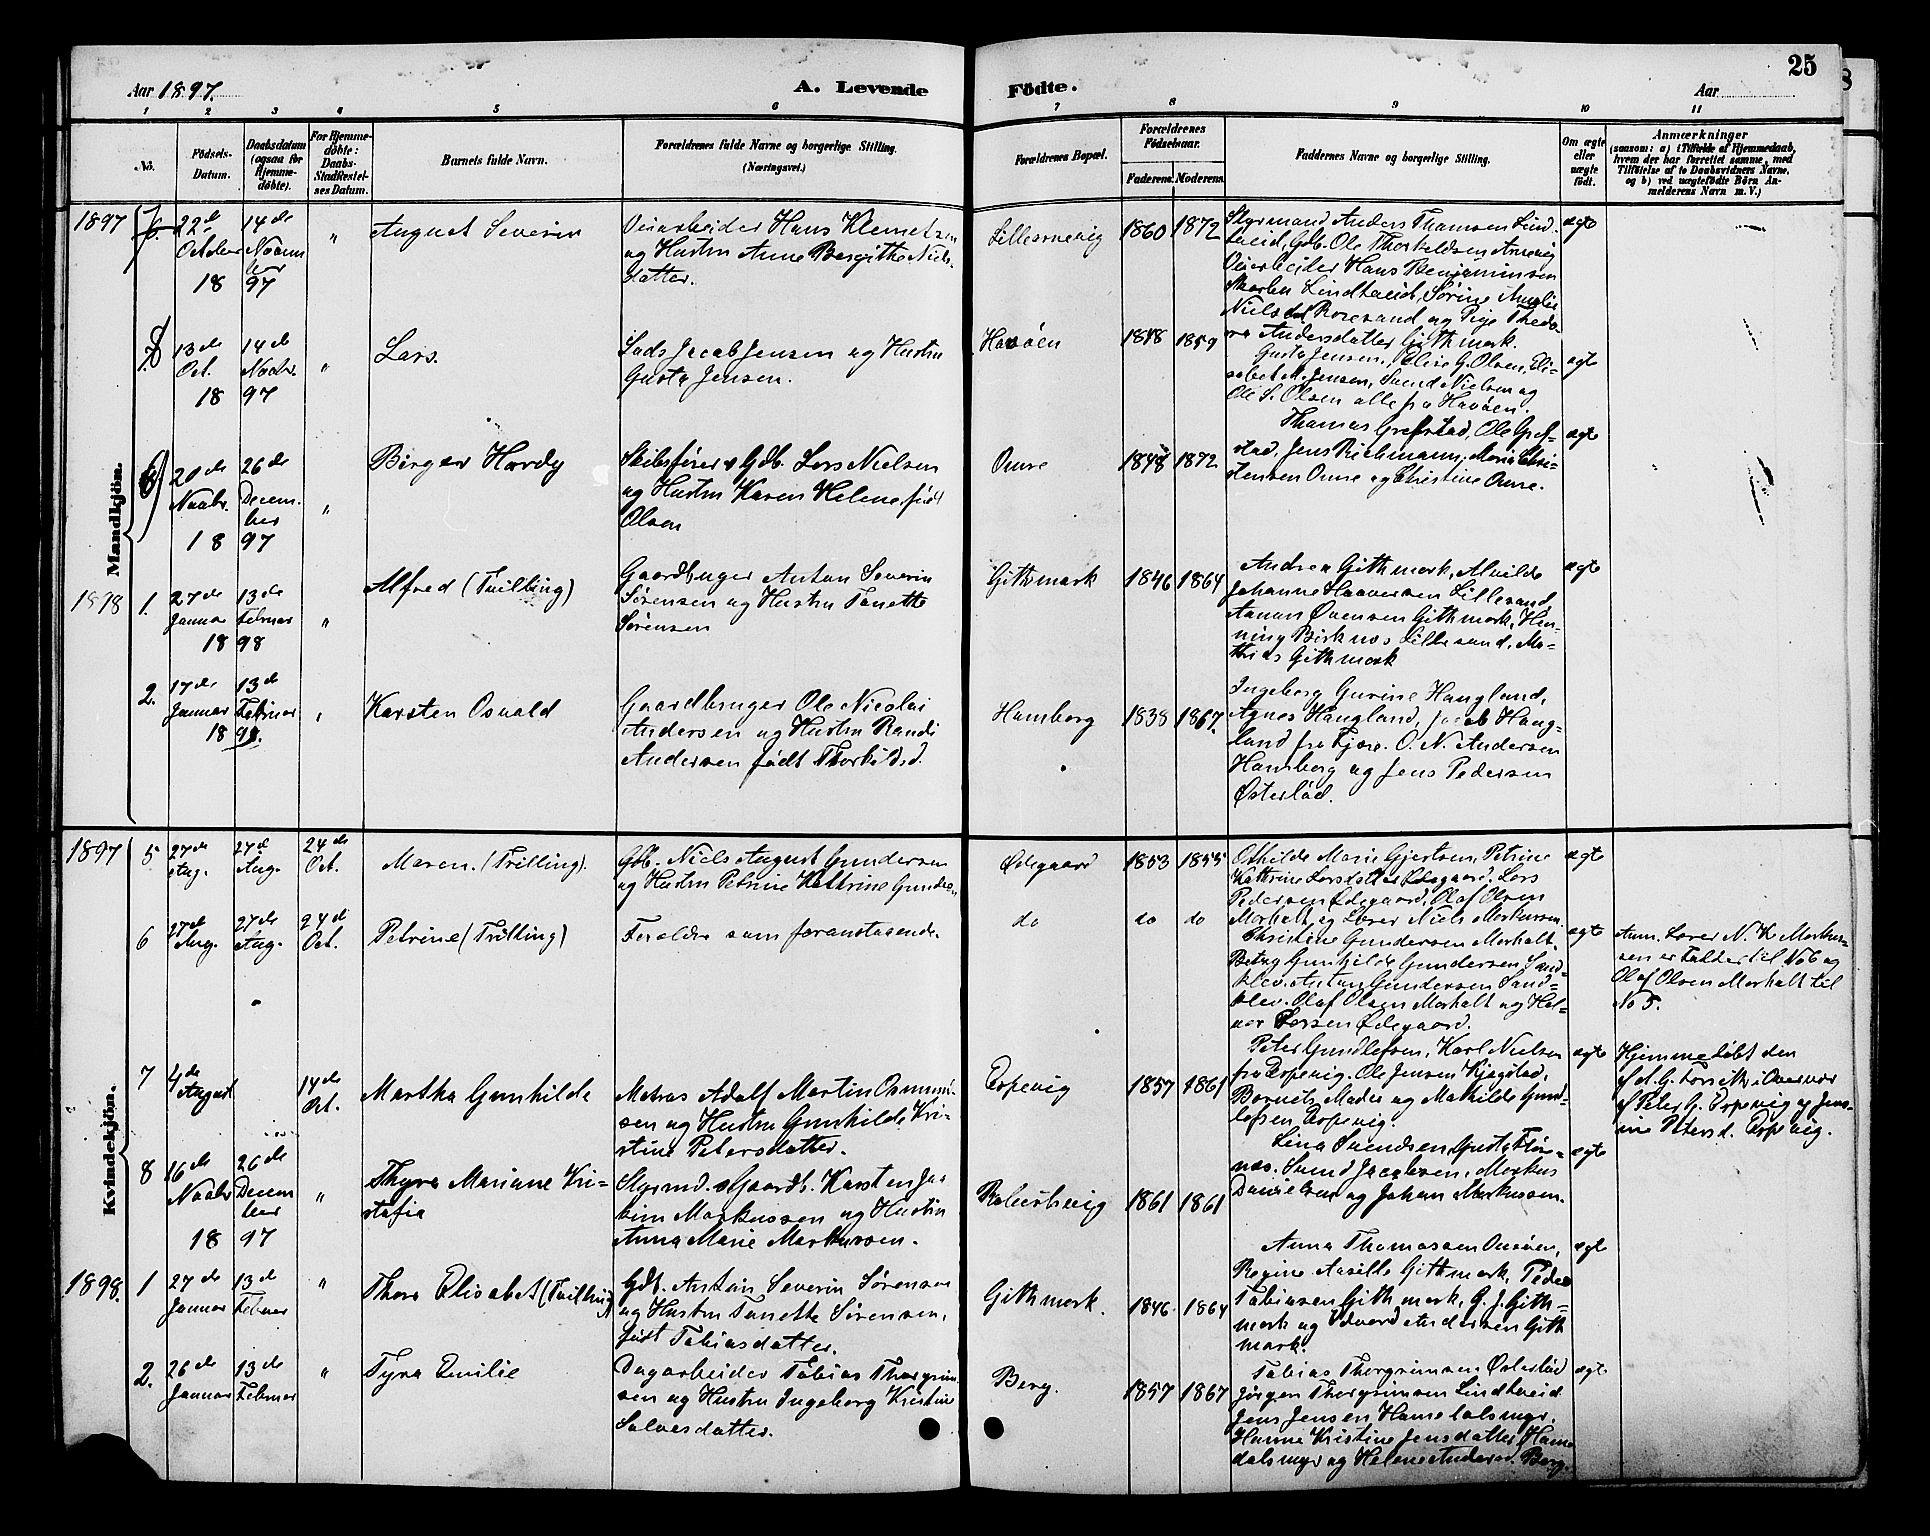 25
Aar 1897.
A. Levende
Födte.
Aar
1 2 3 4 5 6 7 8 9 10 11
No.
Födsels-Datum.
Daabsdatum (ogsaa for Hjemmedöbte).
For Hjemmedöbte: Daabs-Stadfæstelses Datum.
Barnets fulde Navn.
Forældrenes fulde Navne og borgerlige Stilling.
(Næringsvei.)
Forældrenes Bopæl.
Forældrenes Födselsaar.
Faderens. Moderens.
Faddernes Navne og borgerlige Stilling.
Om ægte eller uægte födt.
Anmærkninger
(saasom: a) i Tilfælde af Hjemmedaab,
hvem der har forrettet samme, med
Tilföielse af to Daabsvidners Navne,
og b) ved uægtefödte Börn Anmelderens Navn m. V.)
Mandkjön.
1897
22de October 14de Novem ber 1897
"
August Severin
Veiarbeider Hans Klemetsen
og Hustru Anne Bergithe Niels-
datter.
1860 1872
Styrmand Anders Thomsen Lind-
heid, Gdb. Ole Thorkeldsen
Veiarbeider Hans Benjaminsen
Lindheid, Sörine Amalie
Nielsd. Rosesand og Pige Theodo-
ra Andersdatter Githmark.
ægte
13de Oct. 14de Novbr. 1897
"
Lars.
Lods Jacob Jensen og Hustru
Gusta Jensen.
Havöen
1848 1859
Gusta Jensen, Elise G. Olsen, Eli-
sabet M. Jensen, Svend Nielsen og
Ole S. Olsen alle fra Havöen.
ægte
20de Novbr. 26de Decem-ber 1897
"
Birger Hardy
Skibsförer & Gdb. Lars Nielsen
og Hustru Karen Helene född
Olsen
Omre
1848 1872
Thomas Grefstad, Ole Gref-
stad, Jens Richmann, Maria Chri-
stensen Omre og Christine Omre.
ægte
1898
1. 27de Januar 13de Februar 1898
"
Alfred (Tvilling)
Gaardbruger Anton Severin
Sörensen og Hustru Tanette
Sörensen
Githmark
1846 1864
Andrea Githmark, Alvilde
Johanne Haaversen Lillesand,
Aanon Ovensen Githmark, Hen-
ning Birknes Lillesand, Ma-
thias Githmark
ægte
2. 17de Januar 13de Februar 1898.
"
Karsten Osvald
Gaardbruger Ole Nicolai
Andersen og Hustru Randi
Andersen födt Thorkildsd.
Humborg
1838 1867.
Ingeborg Gurine Haugland,
Agnes Haugland, Jacob Haug-
land fra Fjære. O. N. Andersen
Humborg og Jens Pedersen
Österlöd.
Kvindekjön.
1897
5 27de Aug. 27de Aug. 24de Oct.
Maren. (Trilling).
Gdb. Niels August Gundersen
og Hustru Petrine Kathrine Gunders.
Ødegaard
1853 1855
Othilde Marie Gjertsen, Petrine
Kathrine Larsdatter Ødegaard. Lars
Pedersen Ødegaard, Olaf Olsen
Morholt, og Lærer Niels Markussen
ægte
6 27de Aug. 27de Aug. 24de Oct.
Petrine (Trilling)
Forældre som foranstaaende.
do do do
Christine Gundersen Morholt,
Betzy Gunhilde Gundersen Sand-
klev. Anton Gundersen Sand-
klev. Olaf Olsen Morholt og Hal-
vor Larsen Ødegaard.
ægte
Anm. Lærer N. K. Markus-
sen er Fadder til No 6 og
Olaf Olsen Morholt til
No 5.
7 4de August 14de Oct.
Martha Gunhilda
Matros Adolf Martin Osmund-
sen og Hustru Gunhilde Kri-
stine Petersdatter.
Torpevig
1857 1861
Peter Gundlefsen, Karl Nielsen
fra Torpevig. Ole Jensen Kjøstad,
Barnets Moder og Mathilde Gund-
lefsen Torpevig.
ægte
Hjemmedöbt den
af A. G. Forsith i Overvær
af Peter G. Torpevig og Jens-
ine Petersd. Torpevig.
8 16de Novbr 26de Decem ber 1897
"
Thyra Mariane Kri-
stofia
Styrmd. & Gaardb. Karsten Joa-
kim Markussen og Hustru
Anna Marie Markussen.
1861 1861
Lina Svendsen, Gusta
Svend Jacobsen, Markus
Danielsen og Johan Markussen.
ægte
1898.
1 27de Januar 13de Februar
"
Thora Elisabet (Tvilling)
Gdb. Anton Severin Sörensen
og Hustru Tanette Sörensen,
födt Tobiasdatter.
Githmark.
1846 1864
Anna Thomassen
Regine Aasille Githmark, Peder
Tobiasen Githmark, G. J. Gith-
mark og Edvard Andersen Gith
mark.
ægte
2. 26de Januar 13de Februar
"
Tyra Emilie
Dagarbeider Tobias Thorgrim-
sen og Hustru Ingeborg Kristine
Salvesdatter.
Berg.
1857 1867
Tobias Thorgrimsen Österlöd
Jörgen Thorgrimsen Lindheid
Jens Jensen Humedalsmyr.
Hanne Kristine Jensdatter Hume
dalsmyr og Helene Andersd. Berg.
ægte